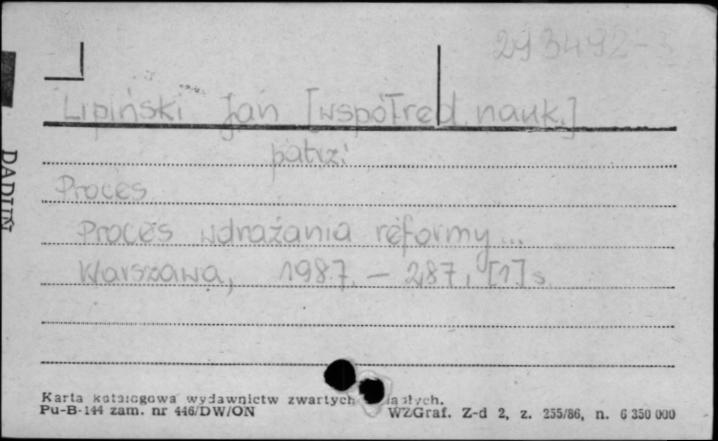 293492-3
Lipiński Jan [współred. nauk.]
patrz:
Proces
Proces wdrażania reformy...
Warszawa, 1987. – 287, [1] s.
Karta katalogowa wydawnictw zwartych
Pu-B-144 zam. nr 446/DW/ON WZGraf. Z-d 2, z. 255/86, n. 6 350 000